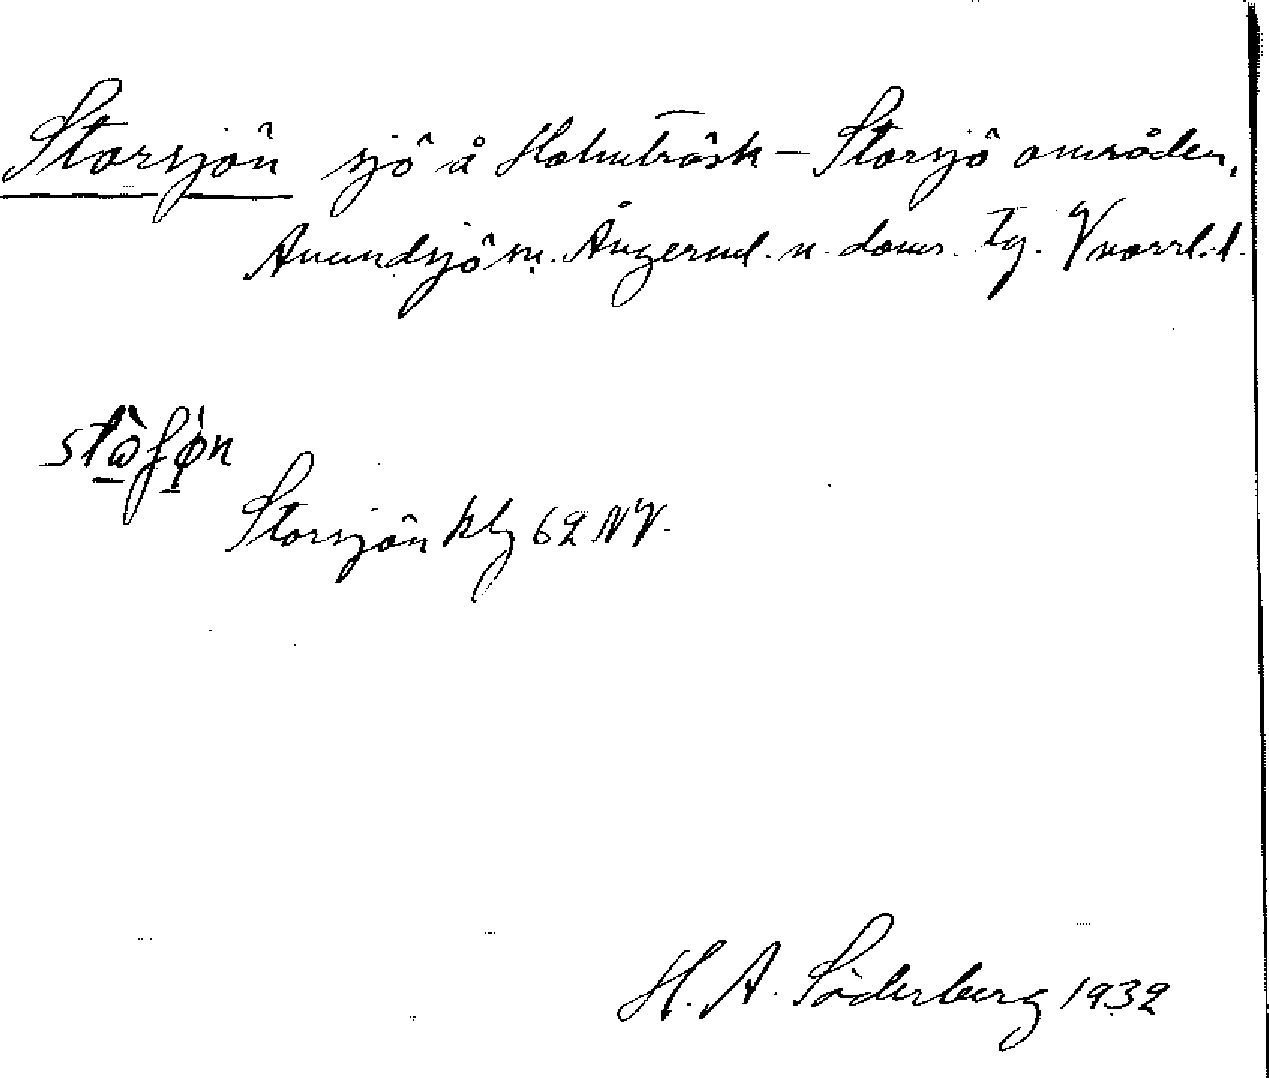 Storsjön sjö å Holmträsk - Storsjö områden,
Anundsjö sn. Ångerml. n. doms. tg. Vnorrl. l.
stòʃö̀n
Storsjön kbl 62 NV.
H. A. Söderberg 1932